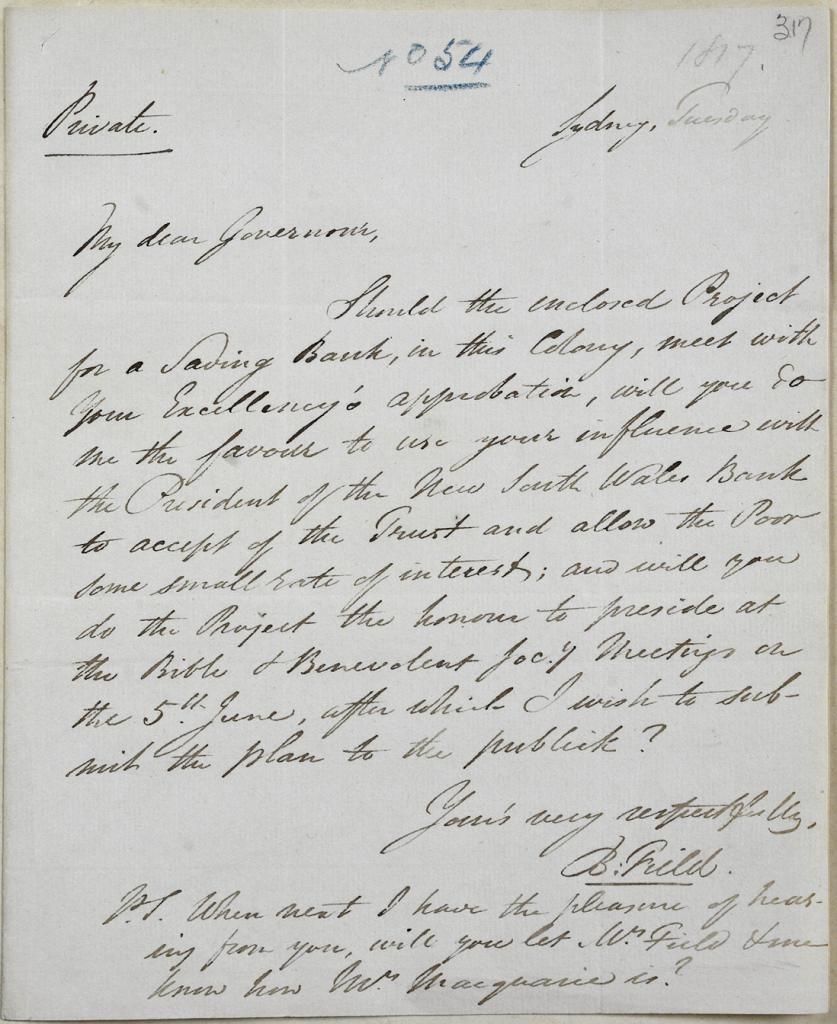 317
No 54
1817.
Private.
Sydney, Tuesday
My dear Governour,
Should the enclosed Project
for a Saving Bank, in this Colony, meet with
Your Excellency's approbation, will you do
me the favour to use your influence with
the President of the New South Wales Bank
to accept of the Trust and allow the Poor
some small rate of interest; and will you
do the Project the honour to preside at
the Bible & Benevolent Soc.y Meetings on
the 5th June, after which I wish to sub-
mit the plan to the publick?
Your's very respectfully,
B: Field.
P.S. When next I have the pleasure of hear-
ing from you, will you let Mrs Field & me
know how Mrs Macquarie is?